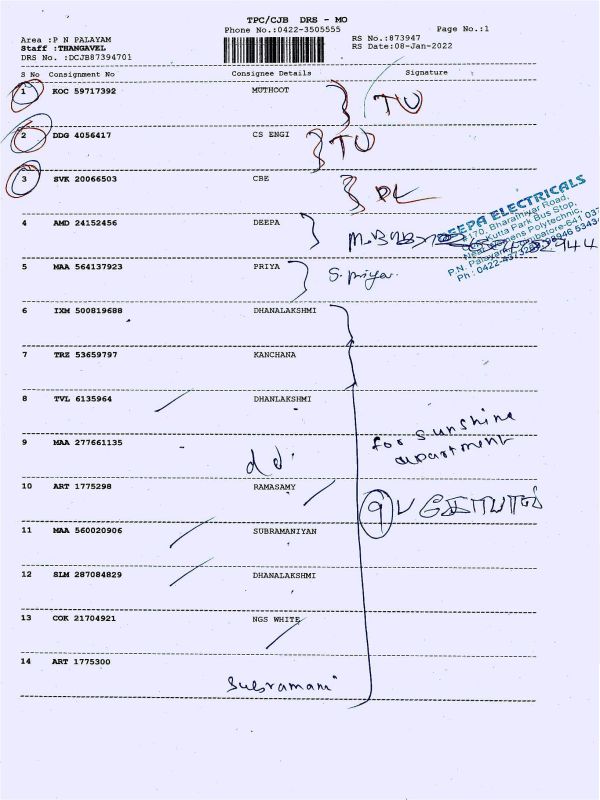 TPC/CJB DRS - MO
Phone No.:0422-3505555
Page No.:1
Area :P N PALAYAM
Staff :THANGAVEL
DRS No. :DCJB87394701
RS No.:873947
RS Date:08-Jan-2022
S No Consignment No Consignee Details Signature
1 KOC 59717392 MUTHOOT
2 DDG 4056417 CS ENGI
3 SVK 20066503 CBE
4 AMD 24152456 DEEPA
SEPA ELECTRICALS
#170, Bharathiyar Road,
Near Kutta Park Bus Stop,
5 MAA 564137923 PRIYA S. priya
6 IXM 500819688 DHANALAKSHMI
7 TRZ 53659797 KANCHANA
8 TVL 6135964 DHANLAKSHMI
for sunshine
apartment
9 MAA 277661135
10 ART 1775298 RAMASAMY
9
11 MAA 560020906 SUBRAMANIYAN
12 SLM 287084829 DHANALAKSHMI
13 COK 21704921 NGS WHITE
14 ART 1775300
Subramani